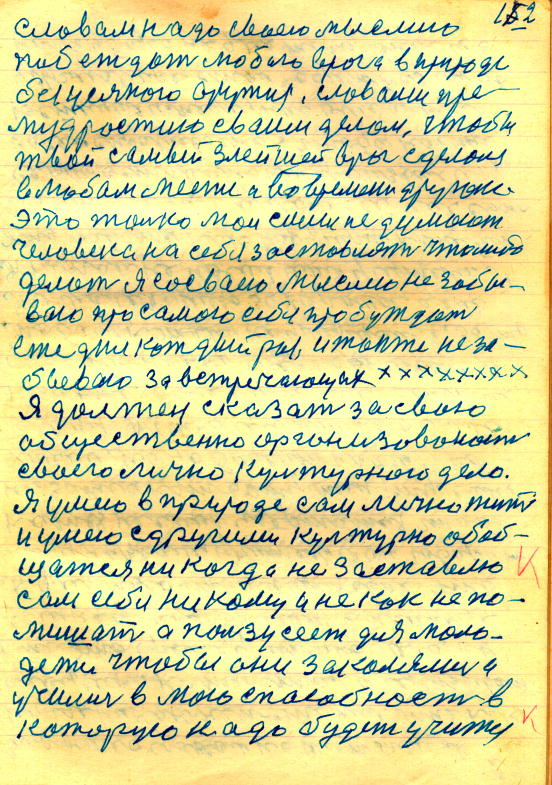 152
словам надо своею мыслию
побеждат любого врога в природе
без усякого оружия, словами пре-
мудростию своим делом, чтобы
твой самый злейшей враг сделоия
в любом месте и во времени другом.
Это толко мои слова не думают
человека на себя заставлят что либо
делат Я со своею мыслию не забы-
ваю про самого себя пробуждат
еже дня каждый раз, и также не за-
бываю за встречающих хххххххх
Я должен сказат за свою
общественно организованост
своего лично культурного дело.
Я умею в природе сам лично жит
и умею с другими культурно обоб-
щатся никогда не заставлю
сам себя никому и не как не по-
мишат а ползу сеет для моло-
дежи чтобы они закомями и
учились в мою способност в
которую надо будет учиту